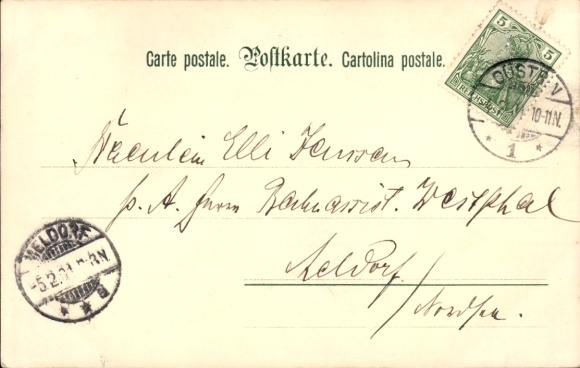 Carte postale. Postkarte. Cartolina postale.
5 5
REICHSPOST
GÜSTROW
10-11N.
* 1 *
Fräulein Elli Janssen
p. A. Herrn Bahnassist. Westphal
Meldorf
/ Nordsee.
MELDORF
-5.2.01